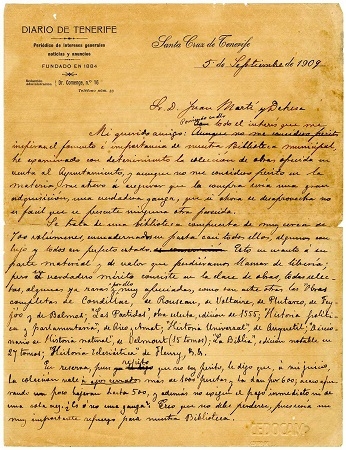 DIARIO DE TENERIFE
Periódico de intereses generales
noticias y anuncios
FUNDADO EN 1884
Santa Cruz de Tenerife
5 de Septiembre de 1909
Redacción
Administración
Dr. Comenge, n.º 16
Teléfono núm.
Sr. D. Juan Martí y Dehesa
Mi querido amigo: todo el interés que me
inspira el fomento é importancia de nuestra Biblioteca municipal,
he examinado con detenimiento la colección de obras ofrecida en
venta al Ayuntamiento, y aunque no me considero perito en la
materia, me atrevo á asegurar que la compra sería una gran
adquisición, una verdadera ganga, que si ahora se desaprovecha no
es fácil que se presente ninguna otra parecida.
Se trata de una biblioteca compuesta de muy cerca de
700 volúmenes, encuadernados en pasta casi todos ellos, algunos con
lujo y todos en perfecto estado. Esto en cuanto á su
parte material, y de valor que pudiéramos llamar de librería,
pero el verdadero mérito consiste en la clase de obras, todas selec-
tas, algunas ya raras y por ello muy apreciadas, como son entre otras las Obras
completas de Condillac, de Rousseau, de Voltaire, de Plutarco, de Fei-
jóo y de Balmes; "Las Partidas", obra selecta, edición de 1555; "Historia política
y parlamentaria", de Rico y Amat; "Historia Universal", de Anquetil; "Diccio-
nario de Historia natural", de Belmont (15 tomos); "La Biblia", edición notable en
27 tomos; "Historia Eclesiástica" de Fleury, &.
En reserva, pues que no soy perito, le digo que, á mi juicio,
la colección vale más de 1000 pesetas y la dan por 600; acaso apu-
rando un poco bajarán hasta 500, y además no exigen el pago inmediato ni de
una sola vez. ¿Es ó no una ganga? Creo que no debe perderse, pues sería un
muy importante refuerzo para nuestra Biblioteca.
CEDOCAM